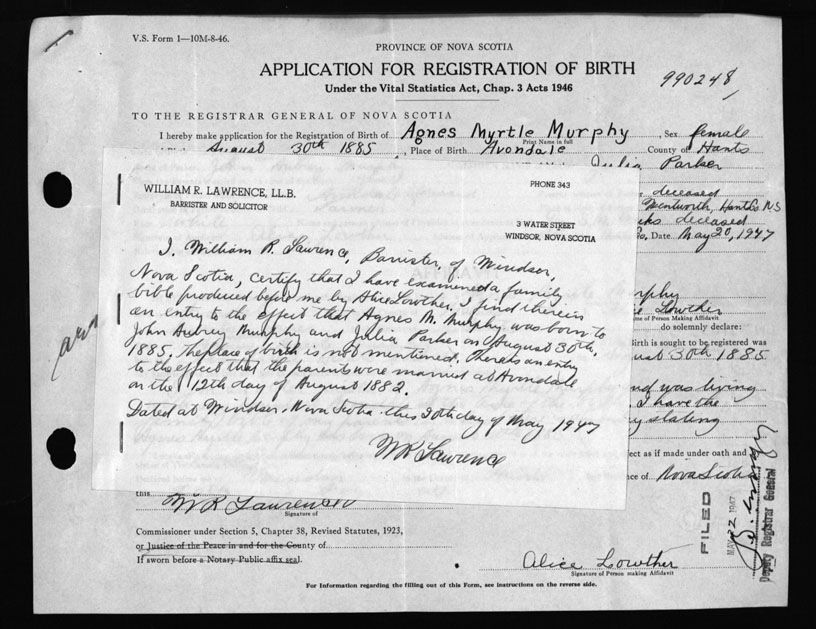 V.S. Form 1—10M-8-46.
PROVINCE OF NOVA SCOTIA
APPLICATION FOR REGISTRATION OF BIRTH
990248
Under the Vital Statistics Act, Chap. 3 Acts 1946
TO THE REGISTRAR GENERAL OF NOVA SCOTIA
I hereby make application for the Registration of Birth of Agnes Myrtle Murphy, Sex female
Print Name in full
August 30th 1885, Place of Birth Avondale County of Hants
Julia Parker
deceased
Wentworth, Hants Co NS
deceased
Date May 20, 1947
WILLIAM R. LAWRENCE, LL.B.
BARRISTER AND SOLICITOR
PHONE 343
3 WATER STREET
WINDSOR, NOVA SCOTIA
I, William R. Lawrence, Barrister, of Windsor,
Nova Scotia, certify that I have examined a family
bible produced before me by Alice Lowther. I find therein
an entry to the effect that Agnes M. Murphy was born to
John Aubrey Murphy and Julia Parker on August 30th,
1885, the place of birth is not mentioned. There is an entry
to the effect that the parents were married at Avondale
on the 12th day of August 1882.
Dated at Windsor, Nova Scotia this 20th day of May 1947
WR Lawrence
Murphy
Lowther
me of Person Making Affidavit
do solemnly declare:
Birth is sought to be registered was
ust 30th 1885
and was living
I have the
stating
ect as if made under oath and
ce of Nova Scotia
this
WR Lawrence
Signature of
Commissioner under Section 5, Chapter 38, Revised Statutes, 1923,
or Justice of the Peace in and for the County of
If sworn before a Notary Public affix seal.
Alice Lowther
Signature of Person making Affidavit
FILED
MAY 22 1947
Deputy Registrar General
For Information regarding the filling out of this Form, see instructions on the reverse side.